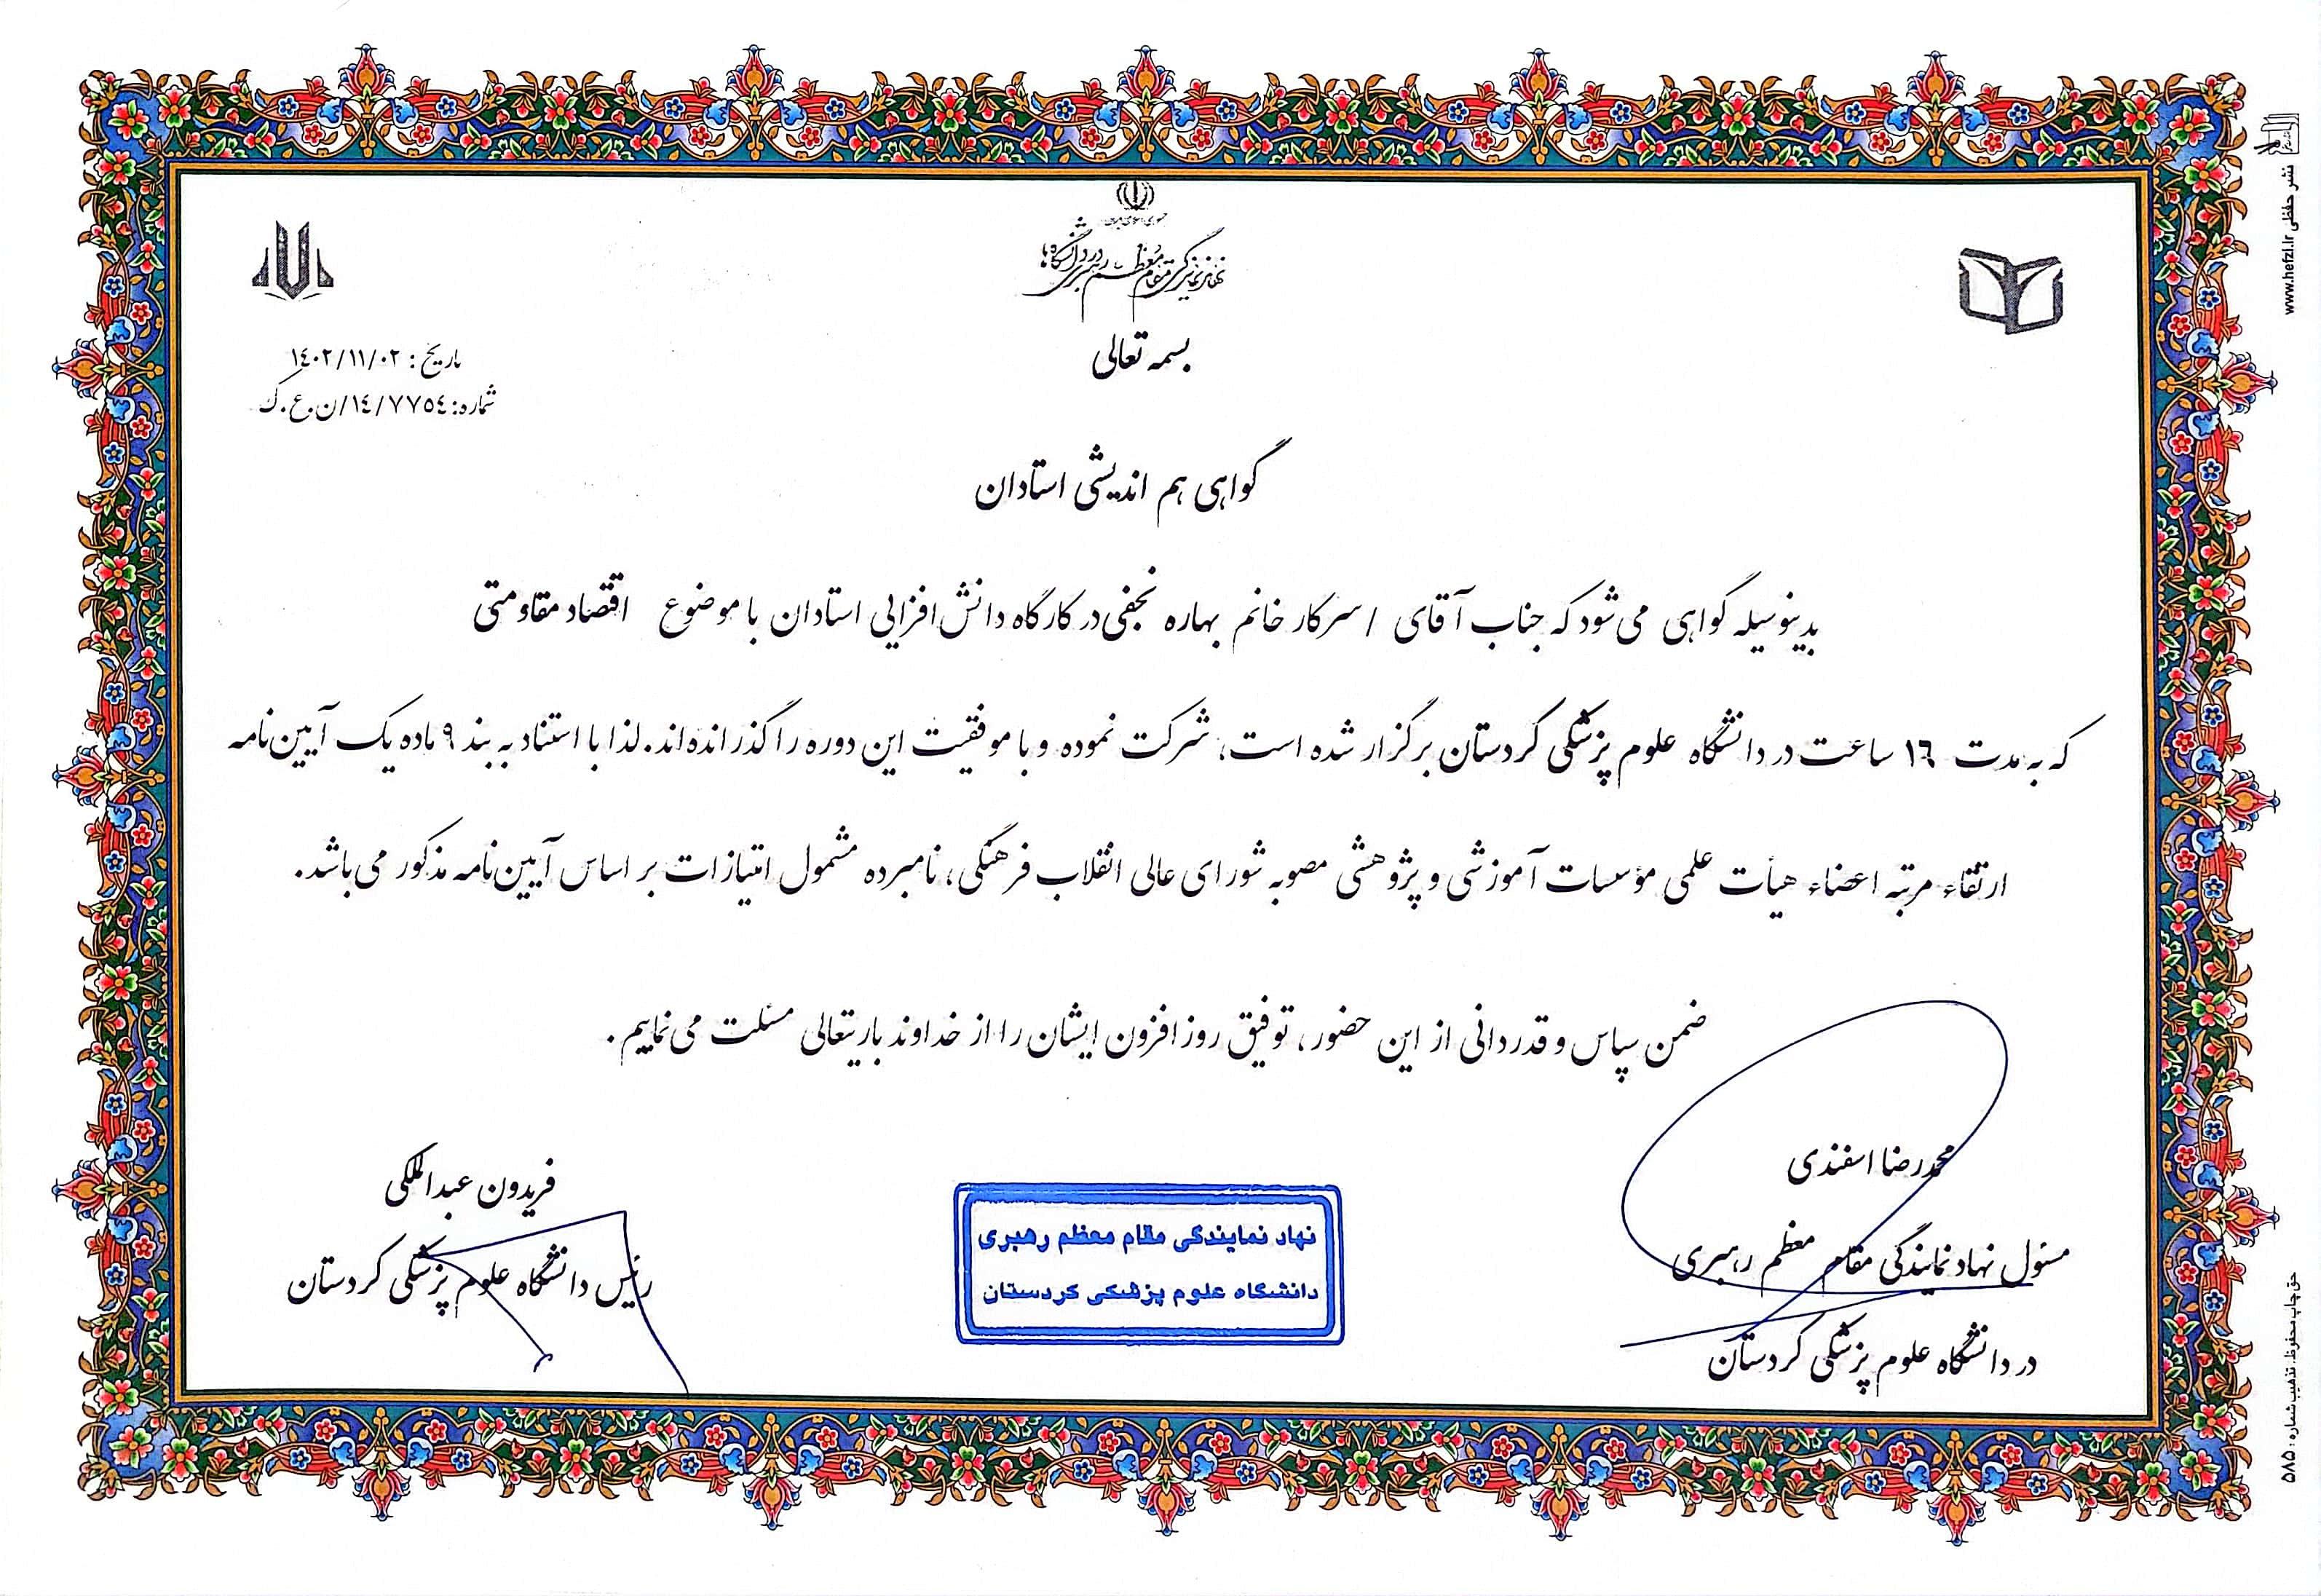 جمهوری اسلامی ایران
نهاد نمایندگی مقام معظم رهبری در دانشگاه‌ها
بسمه تعالی
تاریخ: ١٤٠٢/١١/٠٢
شماره: ١٤/٧٧٥٤/ن.ع.ک
گواهی هم اندیشی استادان
بدینوسیله گواهی می‌شود که جناب آقای / سرکار خانم بهاره نجفی در کارگاه دانش افزایی استادان با موضوع اقتصاد مقاومتی
که به مدت ١٦ ساعت در دانشگاه علوم پزشکی کردستان برگزار شده است، شرکت نموده و با موفقیت این دوره را گذرانده‌اند. لذا با استناد به بند ٩ ماده یک آیین‌نامه
ارتقاء مرتبه اعضاء هیأت علمی مؤسسات آموزشی و پژوهشی مصوبه شورای عالی انقلاب فرهنگی، نامبرده مشمول امتیازات بر اساس آیین‌نامه مذکور می‌باشد.
ضمن سپاس و قدردانی از این حضور، توفیق روز افزون ایشان را از خداوند باریتعالی مسئلت می‌نماییم.
محمدرضا اسفندی
مسئول نهاد نمایندگی مقام معظم رهبری
در دانشگاه علوم پزشکی کردستان
نهاد نمایندگی مقام معظم رهبری
دانشگاه علوم پزشکی کردستان
فریدون عبدالملکی
رئیس دانشگاه علوم پزشکی کردستان
نشر حفظی www.hefzi.ir
حق چاپ محفوظ. تذهیب شماره: ۵۸۵